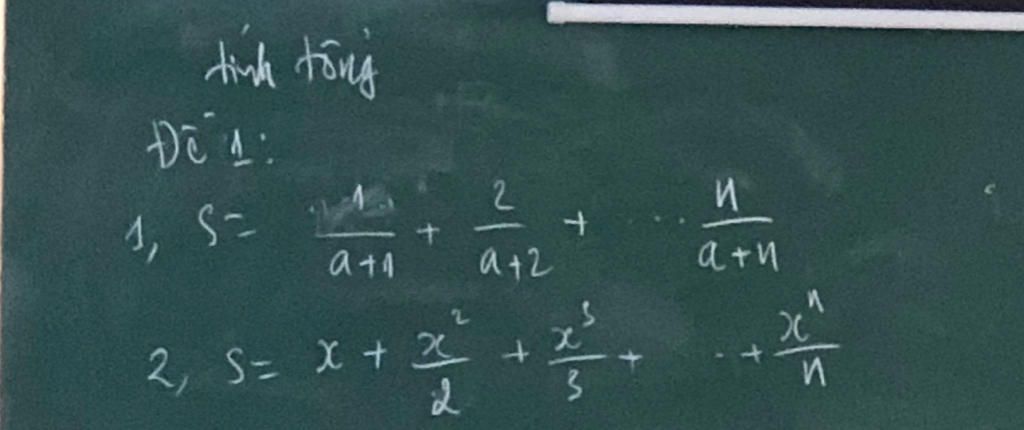 tính tổng
Đề 1:
1, S = 1/(a+1) + 2/(a+2) + ... n/(a+n)
2, S = x + x²/2 + x³/3 + ... + xⁿ/n